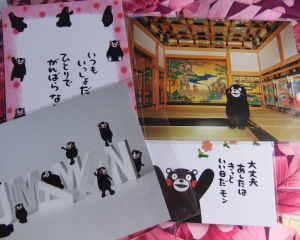 いつも
いっしょだ
ひとりで
がんばらな
大丈夫
あしたは
きっと
いい日だモン